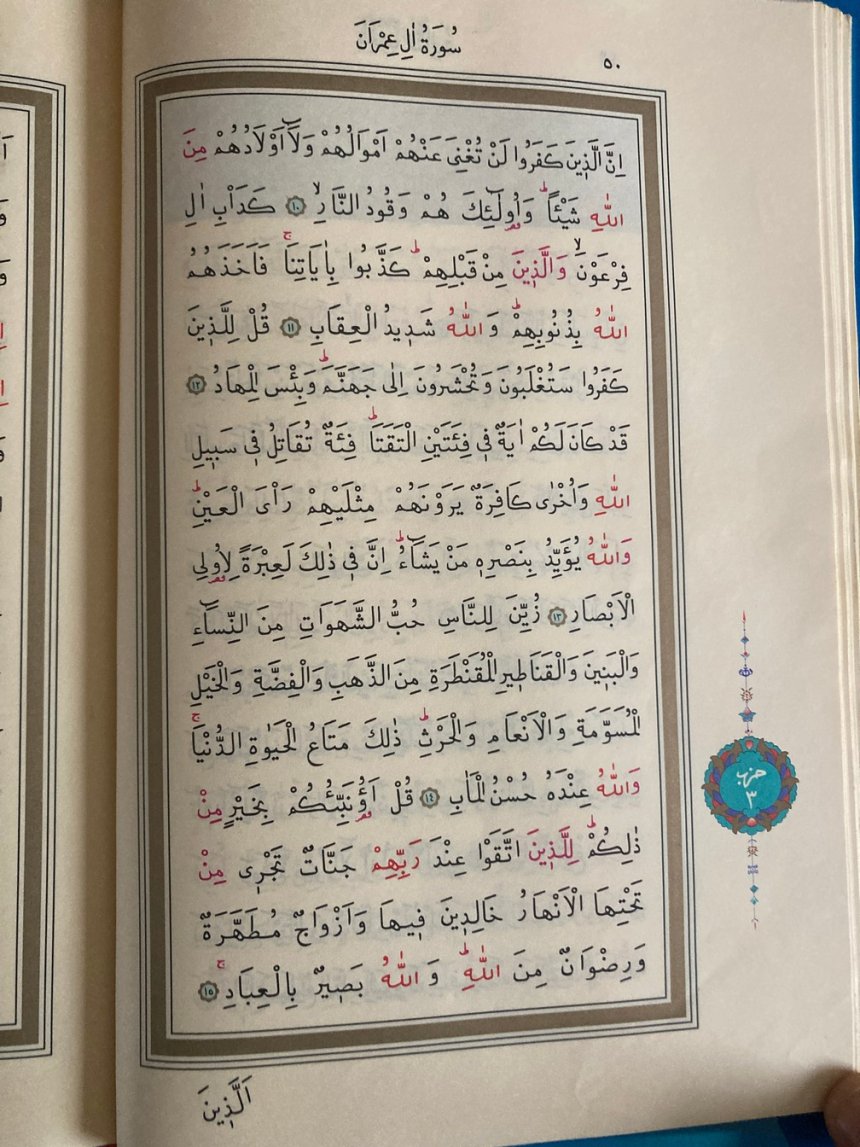 سُورَةُ اٰلِ عِمْرَانَ
٥٠
اِنَّ الَّذ۪ينَ كَفَرُوا لَنْ تُغْنِيَ عَنْهُمْ اَمْوَالُهُمْ وَلَٓا اَوْلَادُهُمْ مِنَ
اللّٰهِ شَيْـًٔاۜ وَاُو۬لٰٓئِكَ هُمْ وَقُودُ النَّارِۙ ﴿١٠﴾ كَدَأْبِ اٰلِ
فِرْعَوْنَۙ وَالَّذ۪ينَ مِنْ قَبْلِهِمْۜ كَذَّبُوا بِاٰيَاتِنَاۚ فَاَخَذَهُمُ
اللّٰهُ بِذُنُوبِهِمْۜ وَاللّٰهُ شَد۪يدُ الْعِقَابِ ﴿١١﴾ قُلْ لِلَّذ۪ينَ
كَفَرُوا سَتُغْلَبُونَ وَتُحْشَرُونَ اِلٰى جَهَنَّمَۜ وَبِئْسَ الْمِهَادُ ﴿١٢﴾
قَدْ كَانَ لَكُمْ اٰيَةٌ ف۪ي فِئَتَيْنِ الْتَقَتَاۜ فِئَةٌ تُقَاتِلُ ف۪ي سَب۪يلِ
اللّٰهِ وَاُخْرٰى كَافِرَةٌ يَرَوْنَهُمْ مِثْلَيْهِمْ رَأْيَ الْعَيْنِۜ
وَاللّٰهُ يُؤَيِّدُ بِنَصْرِه۪ مَنْ يَشَٓاءُۜ اِنَّ ف۪ي ذٰلِكَ لَعِبْرَةً لِاُو۬لِي
الْاَبْصَارِ ﴿١٣﴾ زُيِّنَ لِلنَّاسِ حُبُّ الشَّهَوَاتِ مِنَ النِّسَٓاءِ
وَالْبَن۪ينَ وَالْقَنَاط۪يرِ الْمُقَنْطَرَةِ مِنَ الذَّهَبِ وَالْفِضَّةِ وَالْخَيْلِ
الْمُسَوَّمَةِ وَالْاَنْعَامِ وَالْحَرْثِۜ ذٰلِكَ مَتَاعُ الْحَيٰوةِ الدُّنْيَاۚ
وَاللّٰهُ عِنْدَهُ حُسْنُ الْمَاٰبِ ﴿١٤﴾ قُلْ اَؤُ۬نَبِّئُكُمْ بِخَيْرٍ مِنْ
ذٰلِكُمْۜ لِلَّذ۪ينَ اتَّقَوْا عِنْدَ رَبِّهِمْ جَنَّاتٌ تَجْر۪ي مِنْ
تَحْتِهَا الْاَنْهَارُ خَالِد۪ينَ ف۪يهَا وَاَزْوَاجٌ مُطَهَّرَةٌ
وَرِضْوَانٌ مِنَ اللّٰهِۜ وَاللّٰهُ بَص۪يرٌ بِالْعِبَادِۚ ﴿١٥﴾
حزب
٣
اَلَّذ۪ينَ